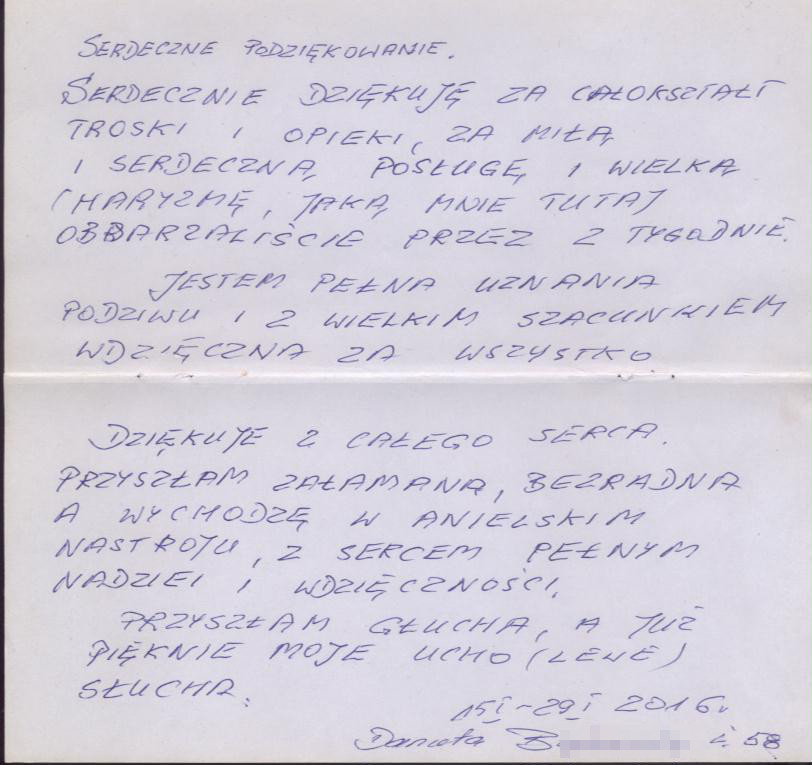 SERDECZNE PODZIĘKOWANIE.
SERDECZNIE DZIĘKUJĘ ZA CAŁOKSZTAŁT
TROSKI I OPIEKI, ZA MIŁĄ
I SERDECZNĄ POSŁUGĘ I WIELKĄ
CHARYZMĘ, JAKĄ MNIE TUTAJ
OBDARZALIŚCIE PRZEZ 2 TYGODNIE.
JESTEM PEŁNA UZNANIA
PODZIWU I Z WIELKIM SZACUNKIEM
WDZIĘCZNA ZA WSZYSTKO
DZIĘKUJĘ Z CAŁEGO SERCA.
PRZYSZŁAM ZAŁAMANA, BEZRADNA
A WYCHODZĘ W ANIELSKIM
NASTROJU, Z SERCEM PEŁNYM
NADZIEI I WDZIĘCZNOŚCI.
PRZYSZŁAM GŁUCHA, A JUŻ
PIĘKNIE MOJE UCHO (LEWE)
SŁUCHA.
15 I - 29 I 2016 r.
Danuta l. 58